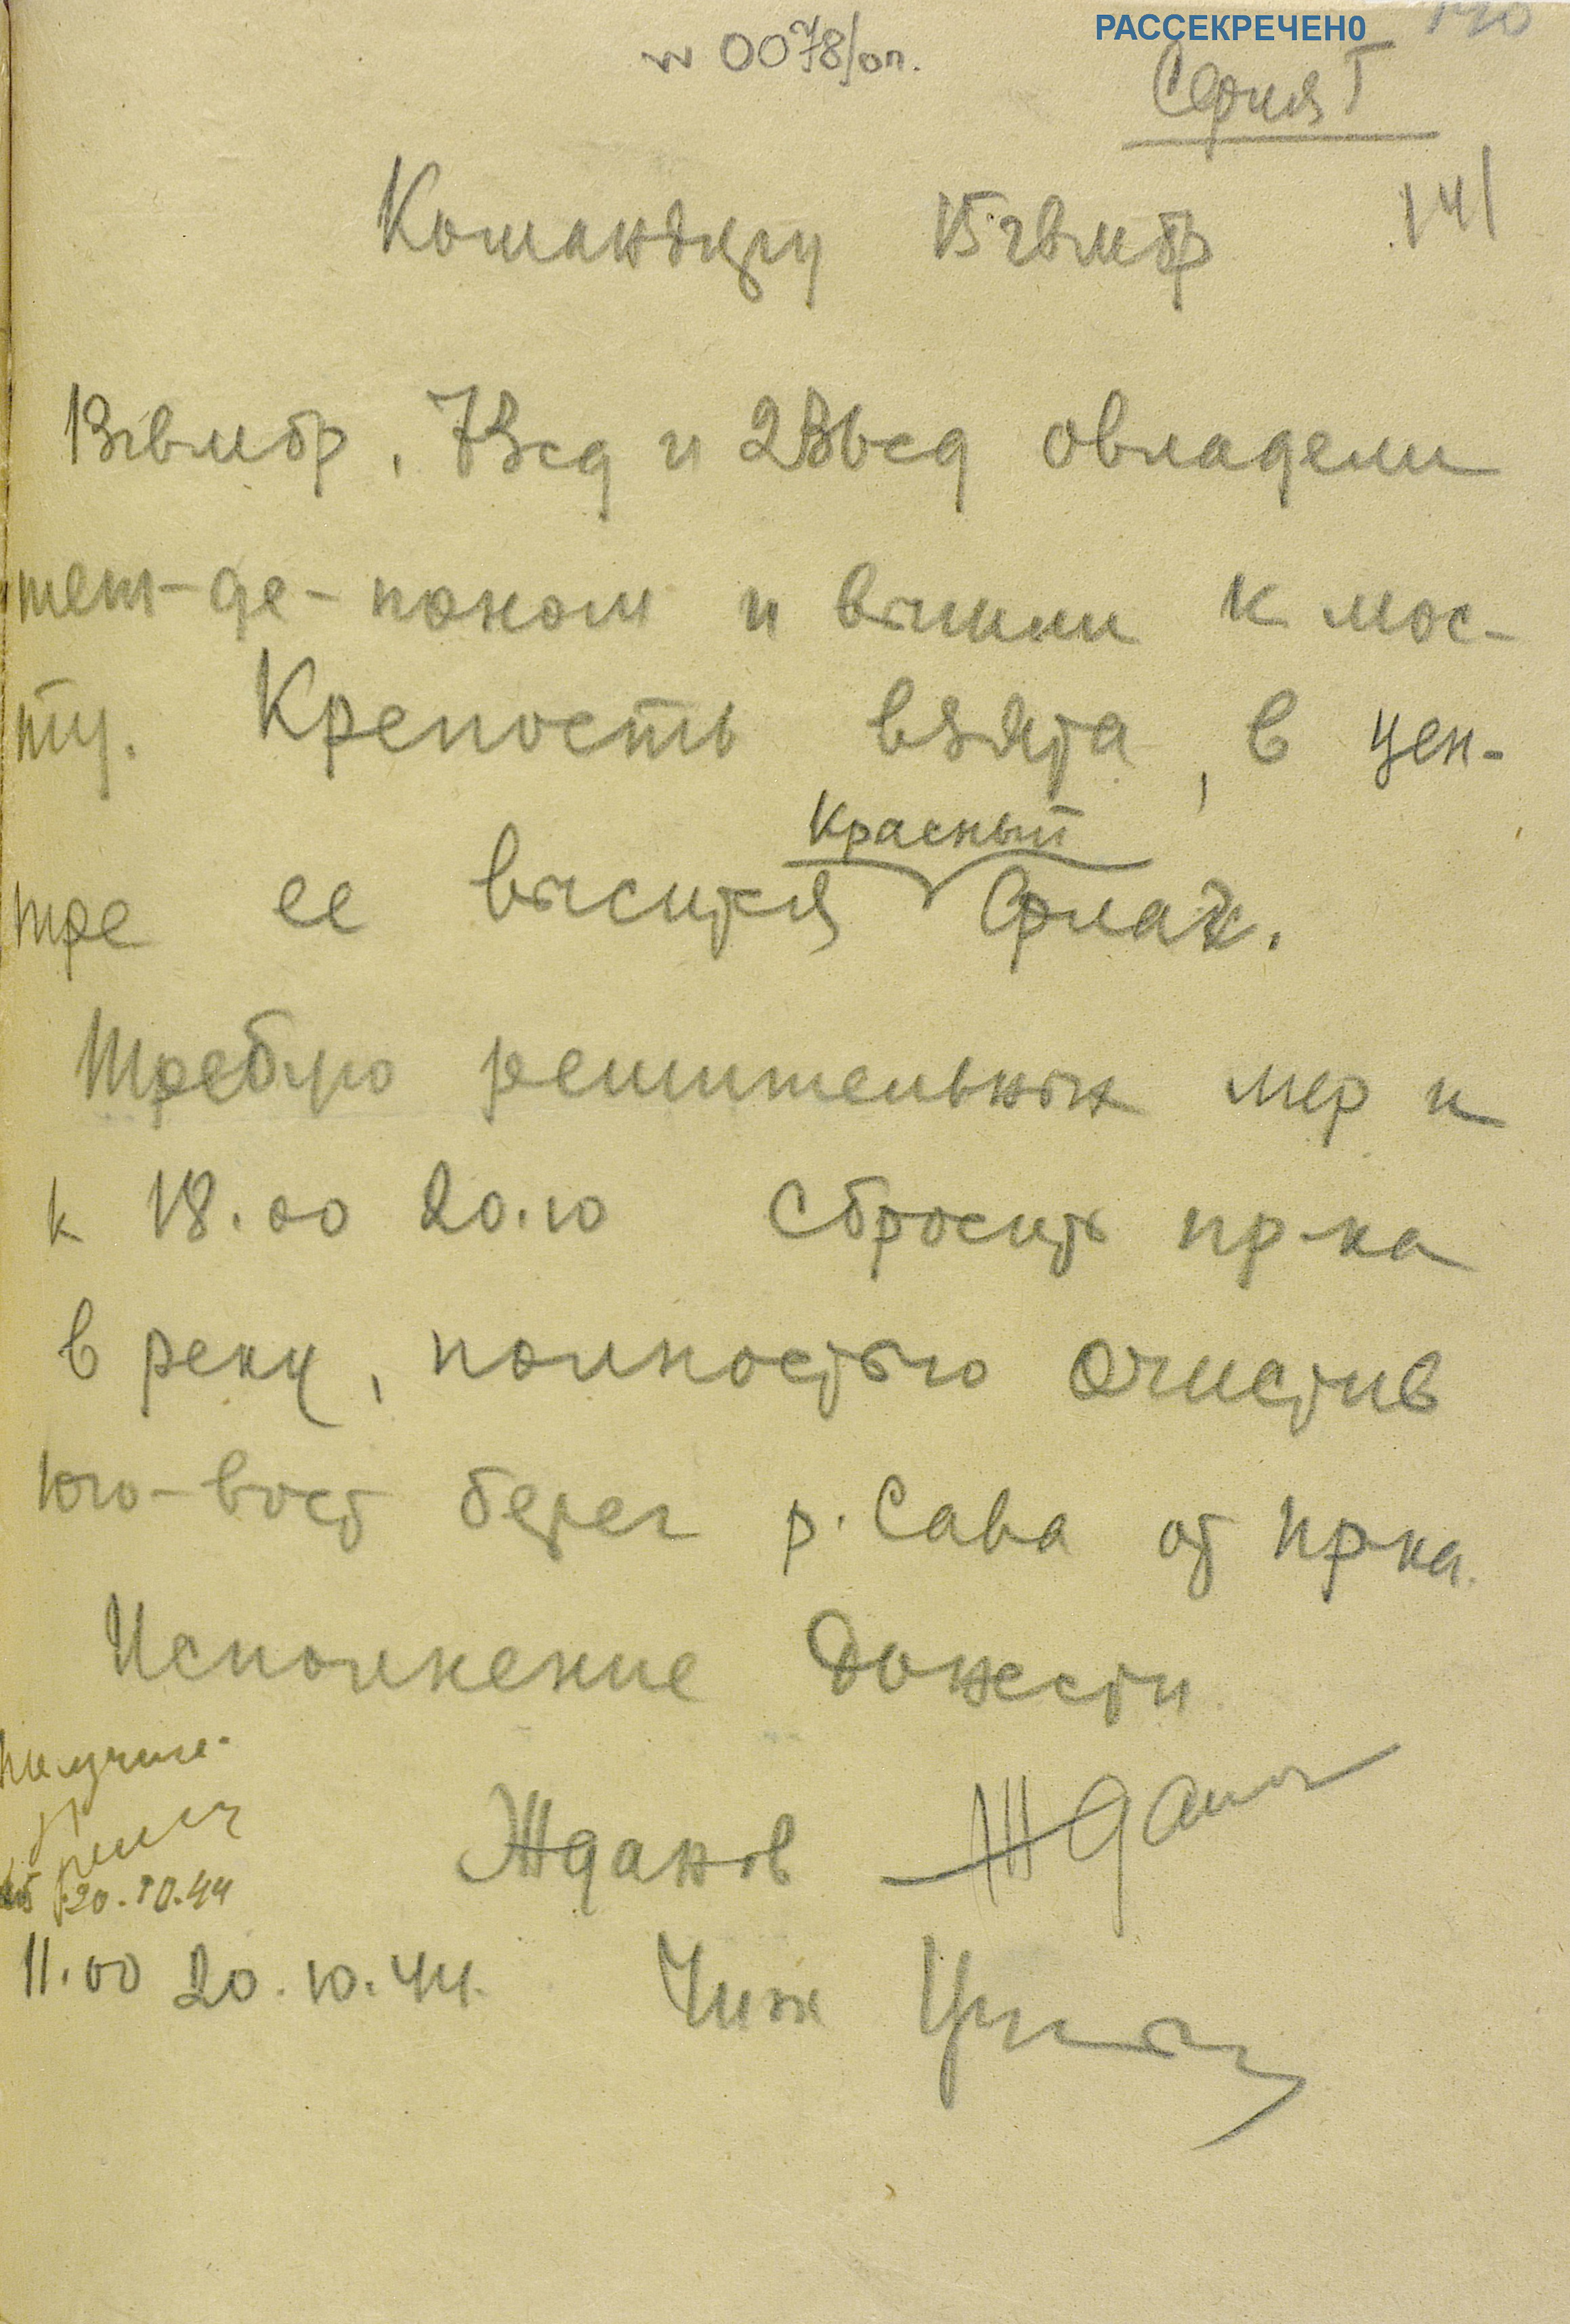 РАССЕКРЕЧЕНО
№ 0078/оп.
Серия Г
141
Командиру 15гвмбр
13гвмбр, 73сд и 236сд овладели
тет-де-поном и вышли к мос-
ту. Крепость взята, в цен-
Красный
тре ее высится флаг.
Требую решительных мер и
к 18.00 20.10 сбросить пр-ка
в реку, полностью очистив
юго-вост берег р. Сава от пр-ка.
Исполнение донести
Получил
20.10.44
Жданов Жданов
11.00 20.10.44. Чиж